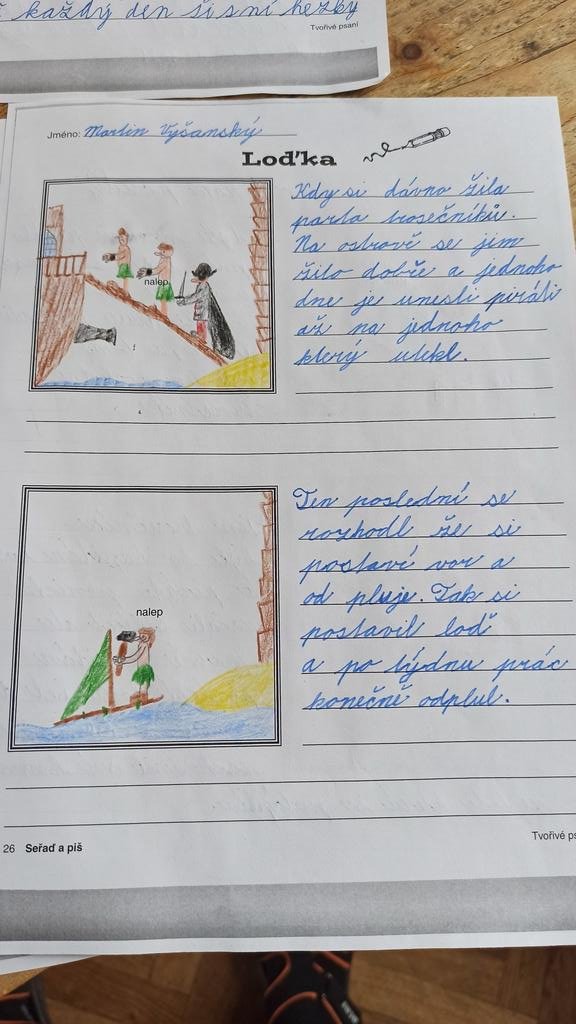 každý den si sní hezky
Tvořivé psaní
Jméno: Martin Vyšanský
Loďka
nalep
Kdy si dávno žila
parta trosečníků.
Na ostrově se jim
žilo dobře a jednoho
dne je unesli piráti
až na jednoho
který utekl.
nalep
Ten poslední se
rozhodl že si
postaví vor a
od pluje. Tak si
postavil loď
a po týdnu prác
konečně odplul.
26 Seřaď a piš
Tvořivé ps